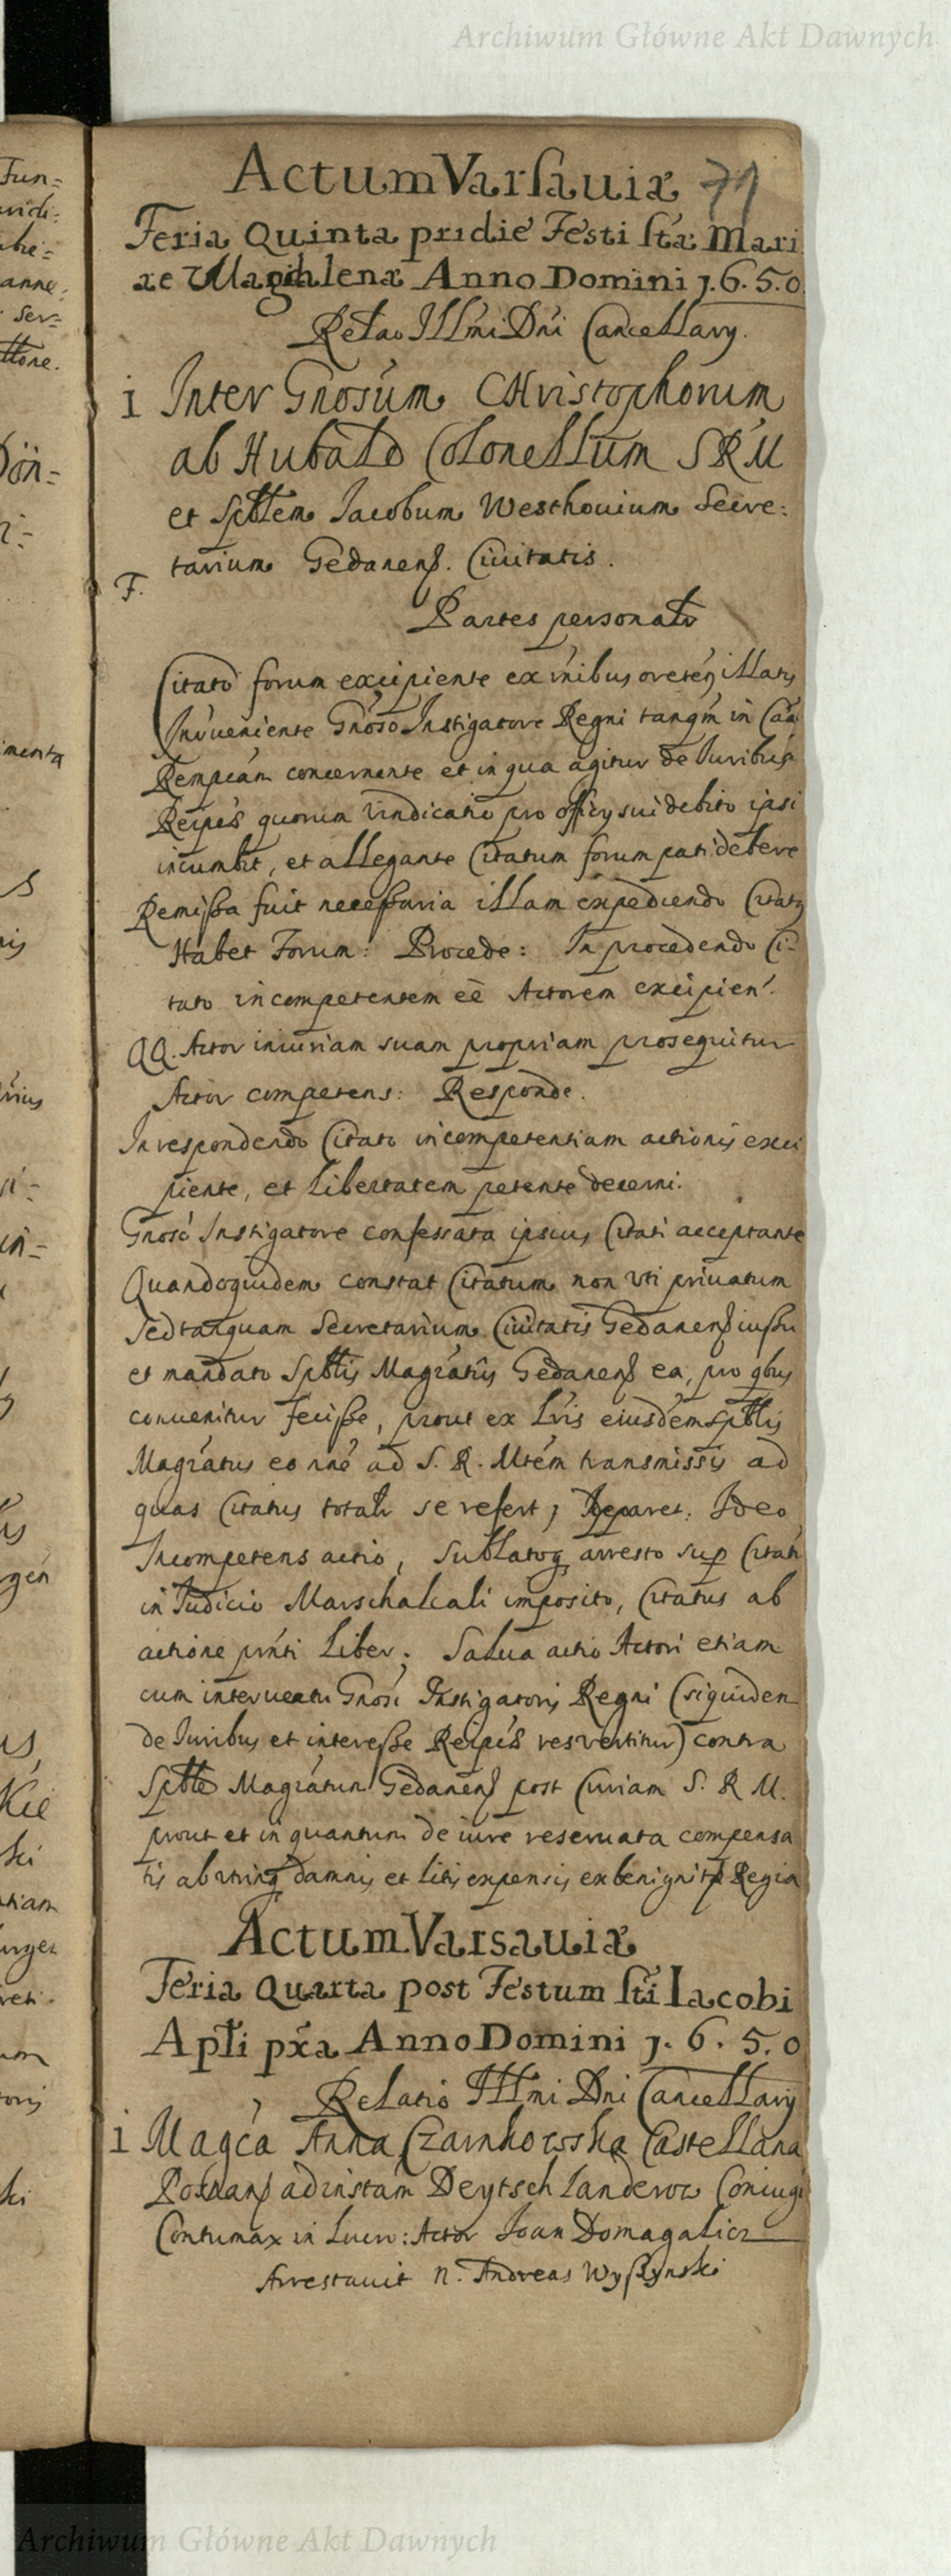 Archiwum Główne Akt Dawnych
Actum Varsauiæ 71
Feria Quinta pridie Festi stæ Mari
ae Magdalenæ Anno Domini 1.6.5.0
Relao Illmi Dni Cancellarÿ.
1 Inter Gnosum Christophorum
ab Hubald Colonellum SRM
et Spblem Iacobum Westhouium Secre:
tarium Gedanens. Ciuitatis.
F.
Partes personalr
Citato forum excipiente ex
Interueniente Gnoso Instigatore Regni tanqm in Cau
concernente et in qua agitur de Iuribus
Reipes quorum vindicatio pro officÿ sui debito ipsi
incumbit, et allegante Citatum forum pati debere
Remissa fuit necessaria illam expediendo Citatq
Habet Forum: Procede: In procedendo Ci-
tato incompetentem eē Actorem excipien.
QQ. Actor iniuriam suam propriam prosequitur
Actor competens: Responde.
In respondendo Citato incompetentiam actionis exci
piente, et libertatem petente decerni.
Gnoso Instigatore confessata ipsius Citati acceptante
Quandoquidem constat Citatum non vti priuatum
Sed tanquam Secretarium Ciuitatis Gedanens iussu
et mandato Spblis Magratus Gedanens ea, pro qbus
conuenitur fecisse, prout ex Lris eiusdem Spblis
Magratus eo nne ad S. R. Mtem transmissis ad
quas Citatus totalr se refert, Apparet. Ideo
Incompetens actio, Sublatoq arresto sup Citati
in Iudicio Marschalcali imposito, Citatus ab
actione pnti liber. Salua actio Actori etiam
cum interuentu Gnosi Instigatoris Regni (siquidem
de Iuribus et interesse Reipes res vertitur) contra
Spble Magratum Gedanens post Curiam S. R M.
prout et in quantum de iure reseruata compensa
tis ab vtrinq damnis et litis expensis ex benignit Regia
Actum Varsauiæ
Feria Quarta post Festum sti Iacobi
Apli pxa Anno Domini 1.6.5.0
Relatio Illmi Dni Cancellarÿ
1 Magca Anna Czarnkowska Castellana
Posnans ad instam Deytschlanderow Coniugu
Contumax in lucro: Actor Ioan Domagalicz
Arrestauit N. Andreas Wyszynski
Archiwum Główne Akt Dawnych